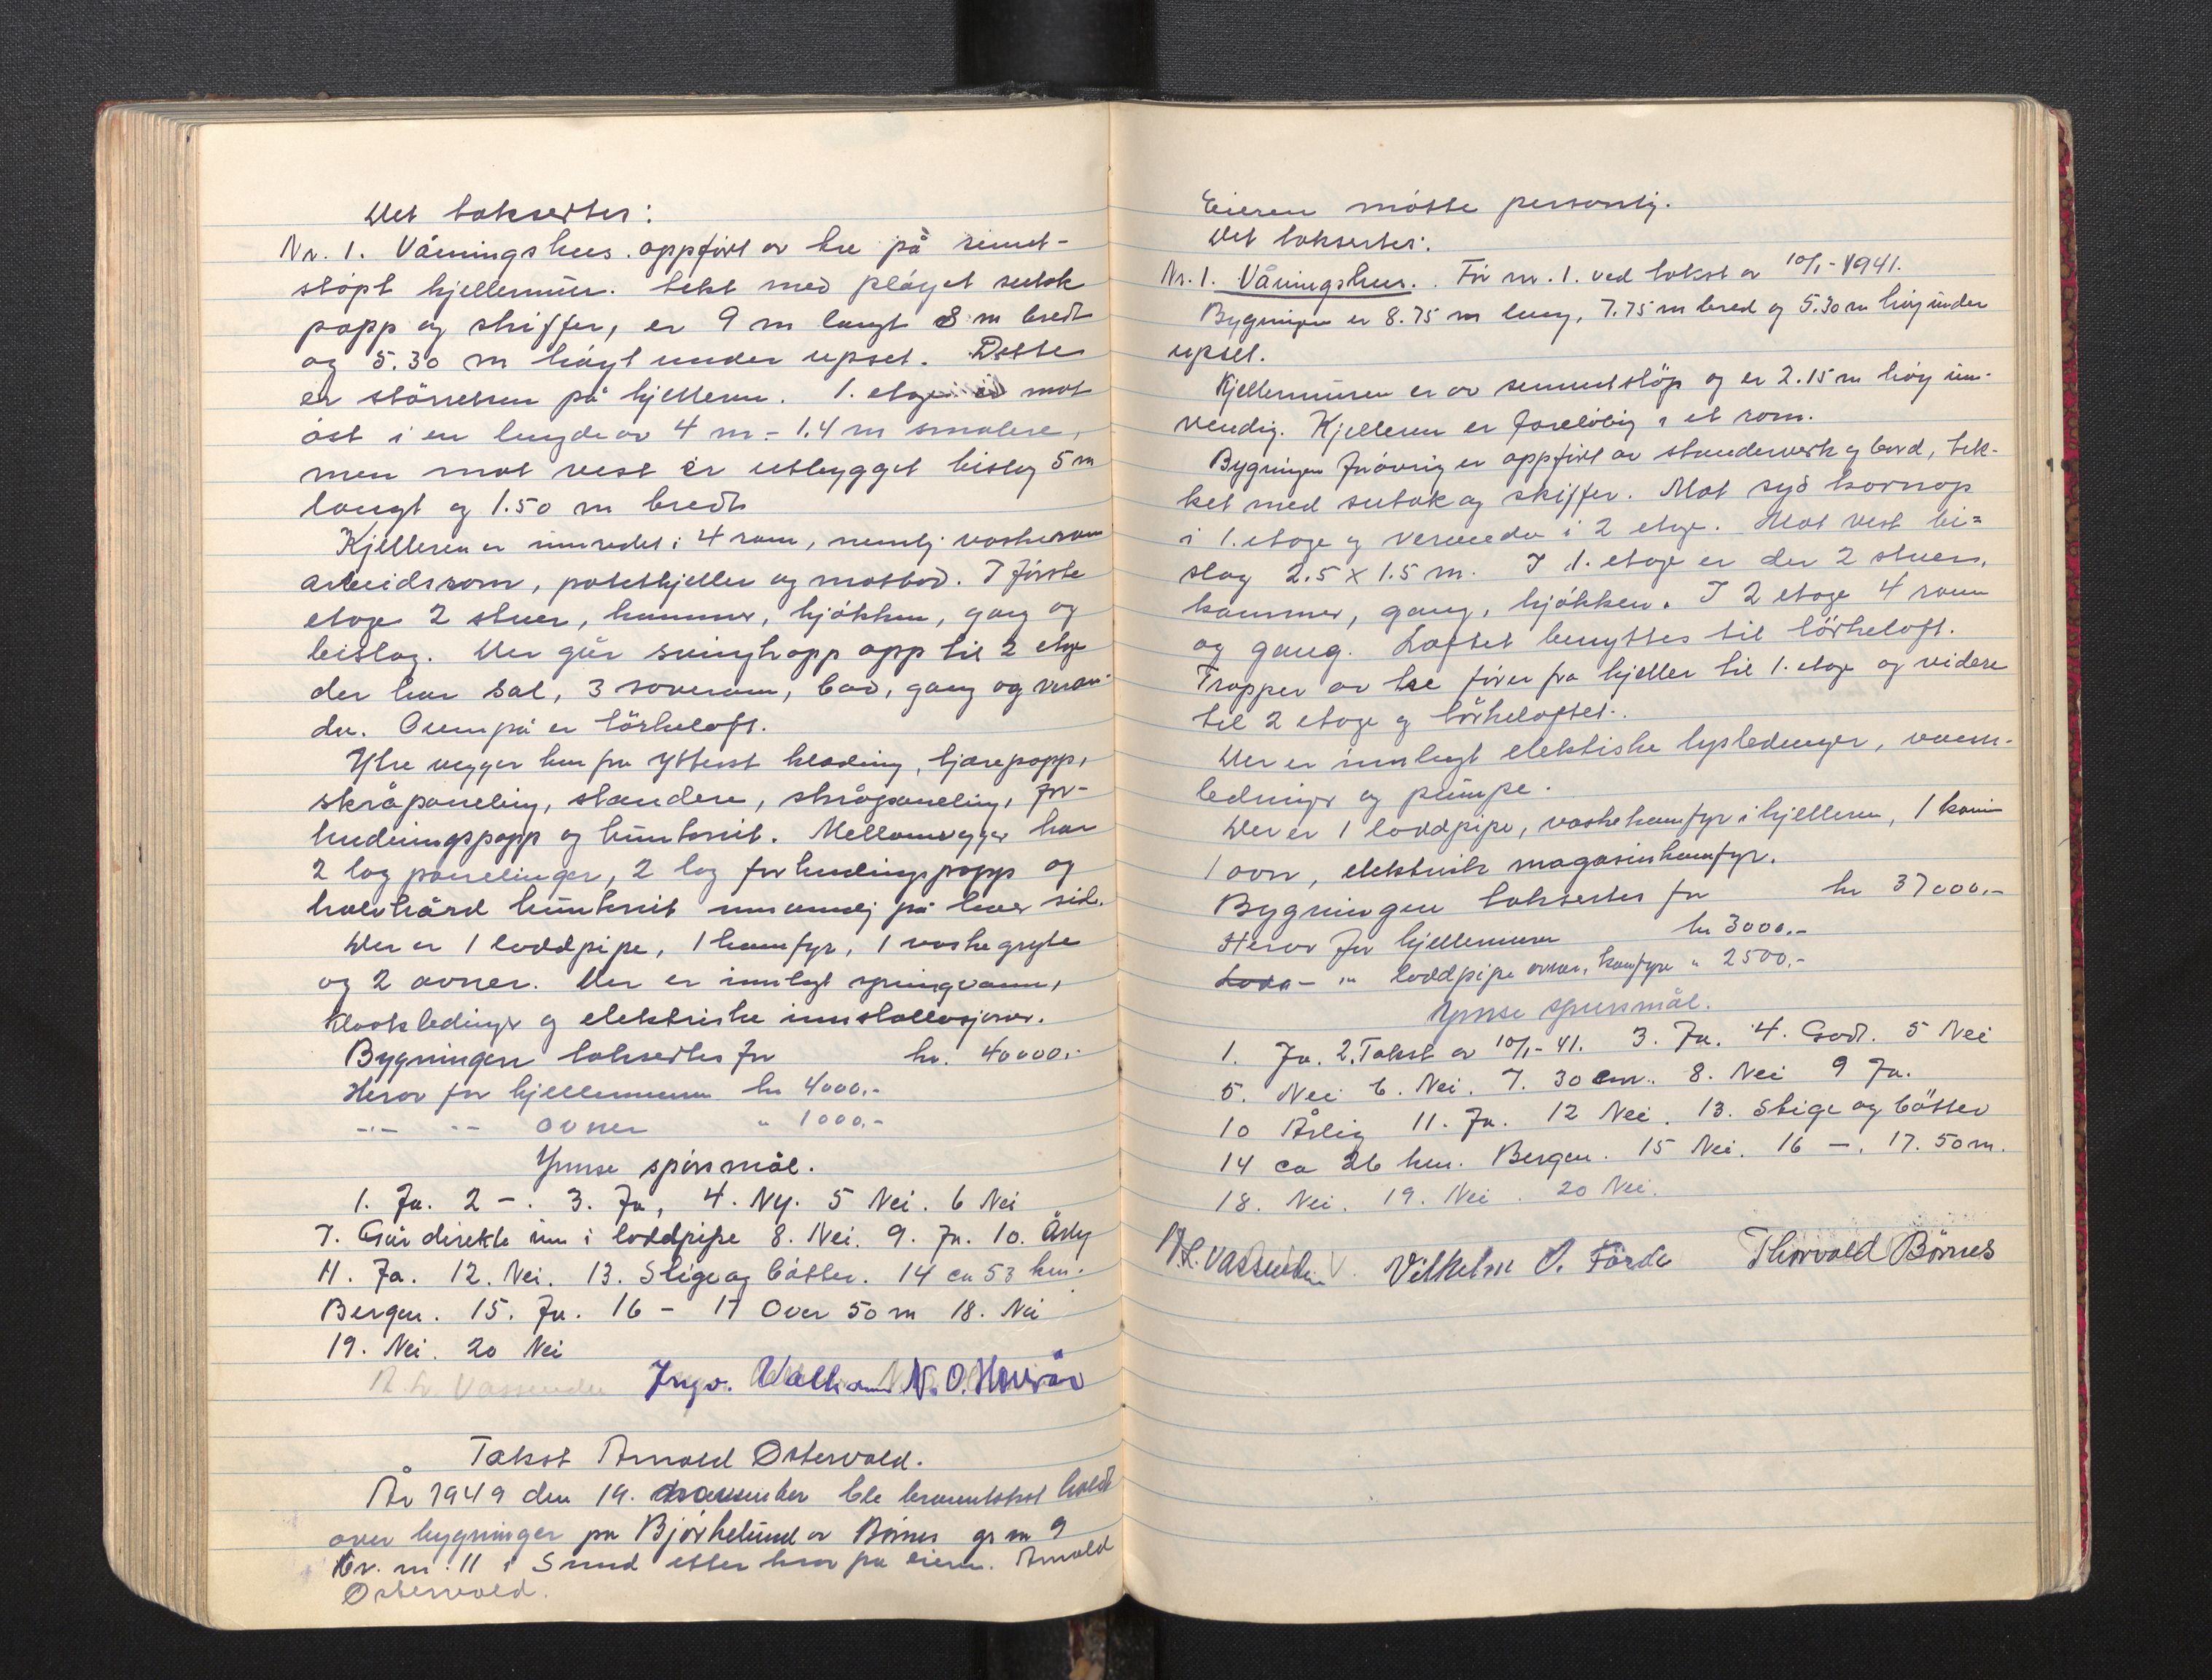 Det taksertes:
Nr. 1. Våningshus. oppført av tre på sement-
støpt kjellermur. tekt med pløyet sutak
papp og skiffer, er 9 m langt 8 m bredt
og 5.30 m høyt under upset. Dette
er størrelsen på kjelleren. 1. etage er mot
øst i en lengde av 4 m - 1.4 m smalere,
men mot vest er utbygget bislag 5 m
langt og 1.50 m bredt
Kjelleren er innredet i 4 rom, nemlig vaskerom
arbeidsrom, potetkjeller og matbod. I første
etage 2 stuer, kammer, kjøkken, gang og
beislag. Der går svingtrapp opp til 2 etage
der har sal, 3 soverom, bad, gang og veran-
da. Ovenpå er tørkeloft.
Ytre vegger har fra ytterst kledning, tjærepapp,
skråpaneling, standere, skråpaneling, for-
hudningspapp og huntonit. Mellomvegger har
2 lag panelinger, 2 lag forhudingspapp og
halvhård huntonit innvendig på hver side.
Der er 1 loddpipe, 1 komfyr, 1 vaskegryte
og 2 ovner. Der er innlagt springvann,
kloakledinger og elektriske innstallasjoner.
Bygningen takseres for kr. 40000.-
Herav for kjellermuren kr 4000.-
-"- -"- ovner " 1000.-
Ymse spørsmål.
1. Ja. 2 -. 3. Ja, 4. Ny. 5 Nei. 6 Nei
7. Går direkte inn i loddpipe 8. Nei. 9. Ja. 10. Årlig
11. Ja. 12. Nei. 13. Stige og bøtter. 14 ca 53 km.
Bergen. 15. Ja. 16 - 17 Over 50 m 18. Nei
19. Nei. 20 Nei
Vassenden Ingv. N. O.
Takst Arnold Østervold.
År 1949 den 19. november ble branntakst holdt
over bygninger på Bjørkelund av Børnes gr nr 9
br. nr. 11 i Sund etter krav fra eieren. Arnold
Østervold.
Eieren møtte personlig.
Det taksertes:
Nr. 1. Våningshus. Før nr. 1. ved takst av 10/1-1941.
Bygningen er 8.75 m lang, 7.75 m bred og 5.30 m høy under
upset.
Kjellermuren er av sementstøp og er 2.15 m høy inn-
vendig. Kjelleren er foreløbig i et rom.
Bygningen forøvrig er oppført av standerverk og bord, tek-
ket med sutak og skiffer. Mot syd karnap
i 1. etage og veranda i 2 etage. Mot vest bi-
slag 2.5 x 1.5 m. I 1. etage er der 2 stuer,
kammer, gang, kjøkken. I 2 etage 4 rom
og gang. Loftet benyttes til tørkeloft.
Trapper av tre fører fra kjeller til 1. etage og videre
til 2 etage og tørkeloftet.
Der er innlagt elektiske lysledninger, vann-
ledninger og pumpe.
Der er 1 loddpipe, vaskekomfyr i kjelleren, 1 kamin
1 ovn, elektrisk magasinkomfyr.
Bygningen takseres for kr 37000.-
Herav for kjellermuren kr 3000.-
-"- loddpipe ovner, komfyr " 2500.-
Ymse spursmål.
1. Ja. 2. Takst av 10/1-41. 3. Ja. 4. God. 5 Nei
5. Nei 6. Nei. 7. 30 cm. 8. Nei 9 Ja.
10 Årlig 11. Ja. 12 Nei. 13. Stige og bøtter
14 ca 26 km. Bergen. 15 Nei. 16 -. 17. 50 m.
18. Nei. 19. Nei. 20 Nei.
Vassenden Vilhelm O. Førde Thorvald Børnes